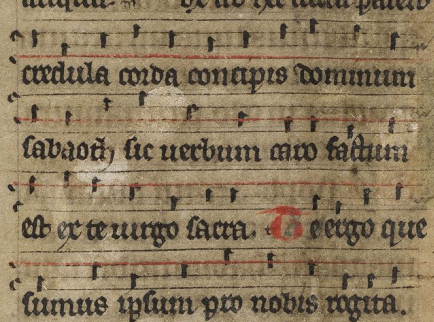 credula corda concipis dominum
sabaoth sic uerbum caro factum
est ex te uirgo sacra. Te ergo que
sumus ipsum pro nobis rogita.